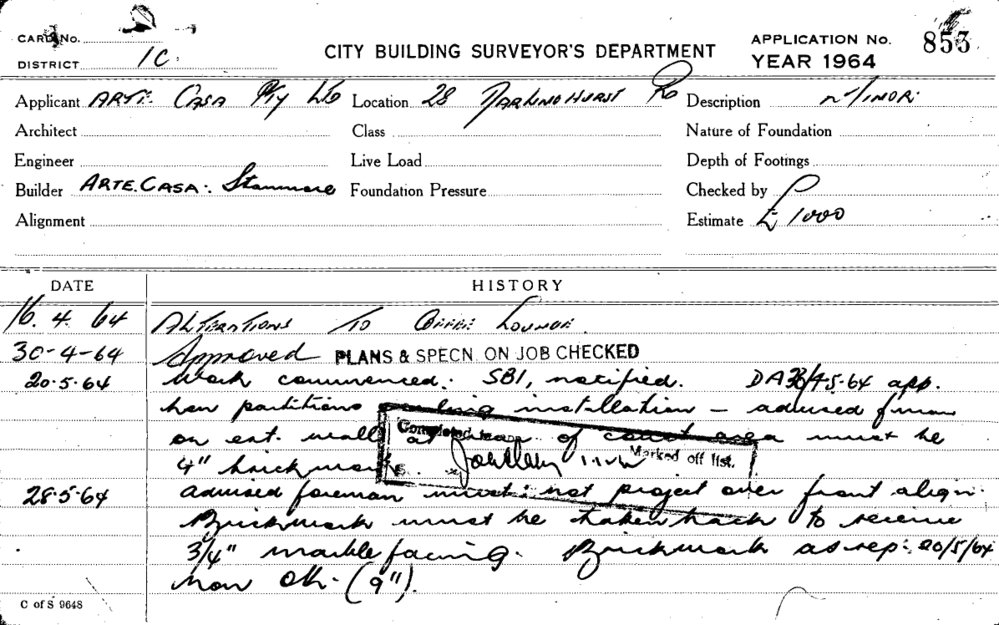 CARD No.
CITY BUILDING SURVEYOR'S DEPARTMENT
APPLICATION No. 853
DISTRICT 1C.
YEAR 1964
Applicant ARTE CASA Pty Ltd Location 28 DARLINGHURST Rd Description MINOR.
Architect Class Nature of Foundation
Engineer Live Load Depth of Footings
Builder ARTE. CASA. Stanmore Foundation Pressure Checked by
Alignment Estimate £ 1000
DATE HISTORY
16. 4. 64 ALTERATIONS TO COFFEE LOUNGE.
30-4-64 Approved PLANS & SPECN. ON JOB CHECKED
20.5.64 Work commenced. SBI, notified. DA 4.5.64 app.
partitions installation – advised
on ext. wall of court area must be
Completed
Marked off list.
4" brickwork
28.5.64 advised foreman must not project over front align.
Brickwork must be taken back to receive
3/4" marble facing. Brickwork as rep: 20/5/64
now OK. (9").
C of S 9648